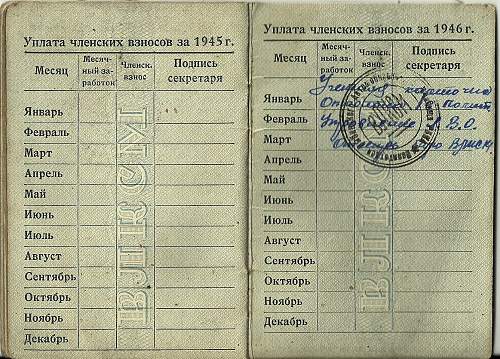 Уплата членских взносов за 1945 г.
Месяц Месяч-ный за-работок Членск. взнос Подпись секретаря
Январь
Февраль
Март
Апрель
Май
Июнь
Июль
Август
Сентябрь
Октябрь
Ноябрь
Декабрь
ВЛКСМ
Уплата членских взносов за 1946 г.
Месяц Месяч-ный за-работок Членск. взнос Подпись секретаря
Учетная карточка
Январь
Февраль
Март
Апрель
Май
Июнь
Июль
Август
Сентябрь
Октябрь
Ноябрь
Декабрь
ВЛКСМ